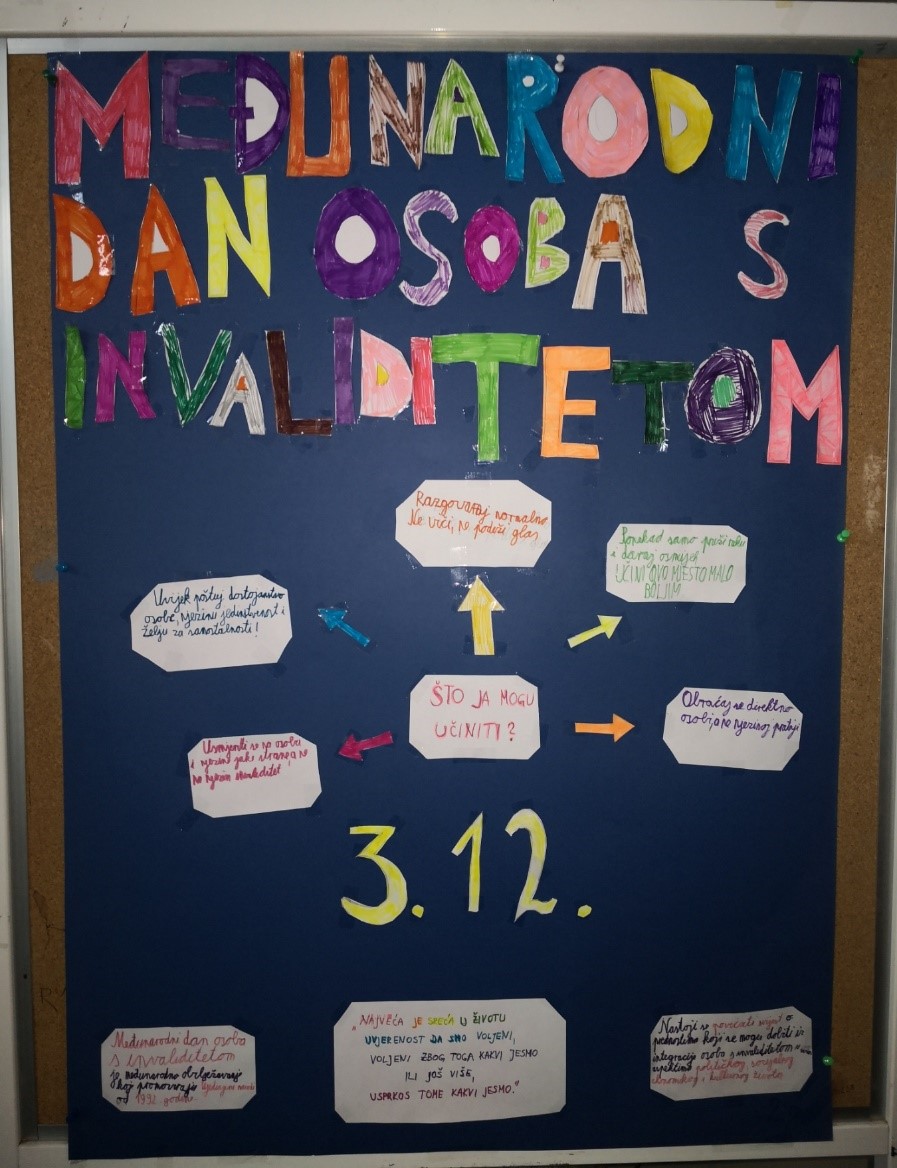 MEĐUNARODNI
DAN OSOBA S
INVALIDITETOM
Razgovaraj normalno
Ne viči, ne podiži glas
Ponekad samo pruži ruku
i daruj osmijeh
UČINI OVO MJESTO MALO
BOLJIM
Uvijek poštuj dostojanstvo
osobe, njezinu jedinstvenost i
želju za samostalnosti!
ŠTO JA MOGU
UČINITI?
Obraćaj se direktno
osobi, a ne njezinoj pratnji
Usmjeriti se na osobu
i njezine jake strane, a ne
na njezin
3.12.
Međunarodni dan osoba
s invaliditetom
je međunarodno obilježavanje
koji promoviraju Ujedinjeni narodi
od 1992. godine.
„NAJVEĆA JE SREĆA U ŽIVOTU
UVJERENOST DA SMO VOLJENI,
VOLJENI ZBOG TOGA KAKVI JESMO
ILI JOŠ VIŠE,
USPRKOS TOME KAKVI JESMO."
Nastoji se povećati svijest o
prednostima koji se mogu dobiti iz
integracije osoba s invaliditetom u
aspektima političkog, socijalnog
ekonomskog i kulturnog života